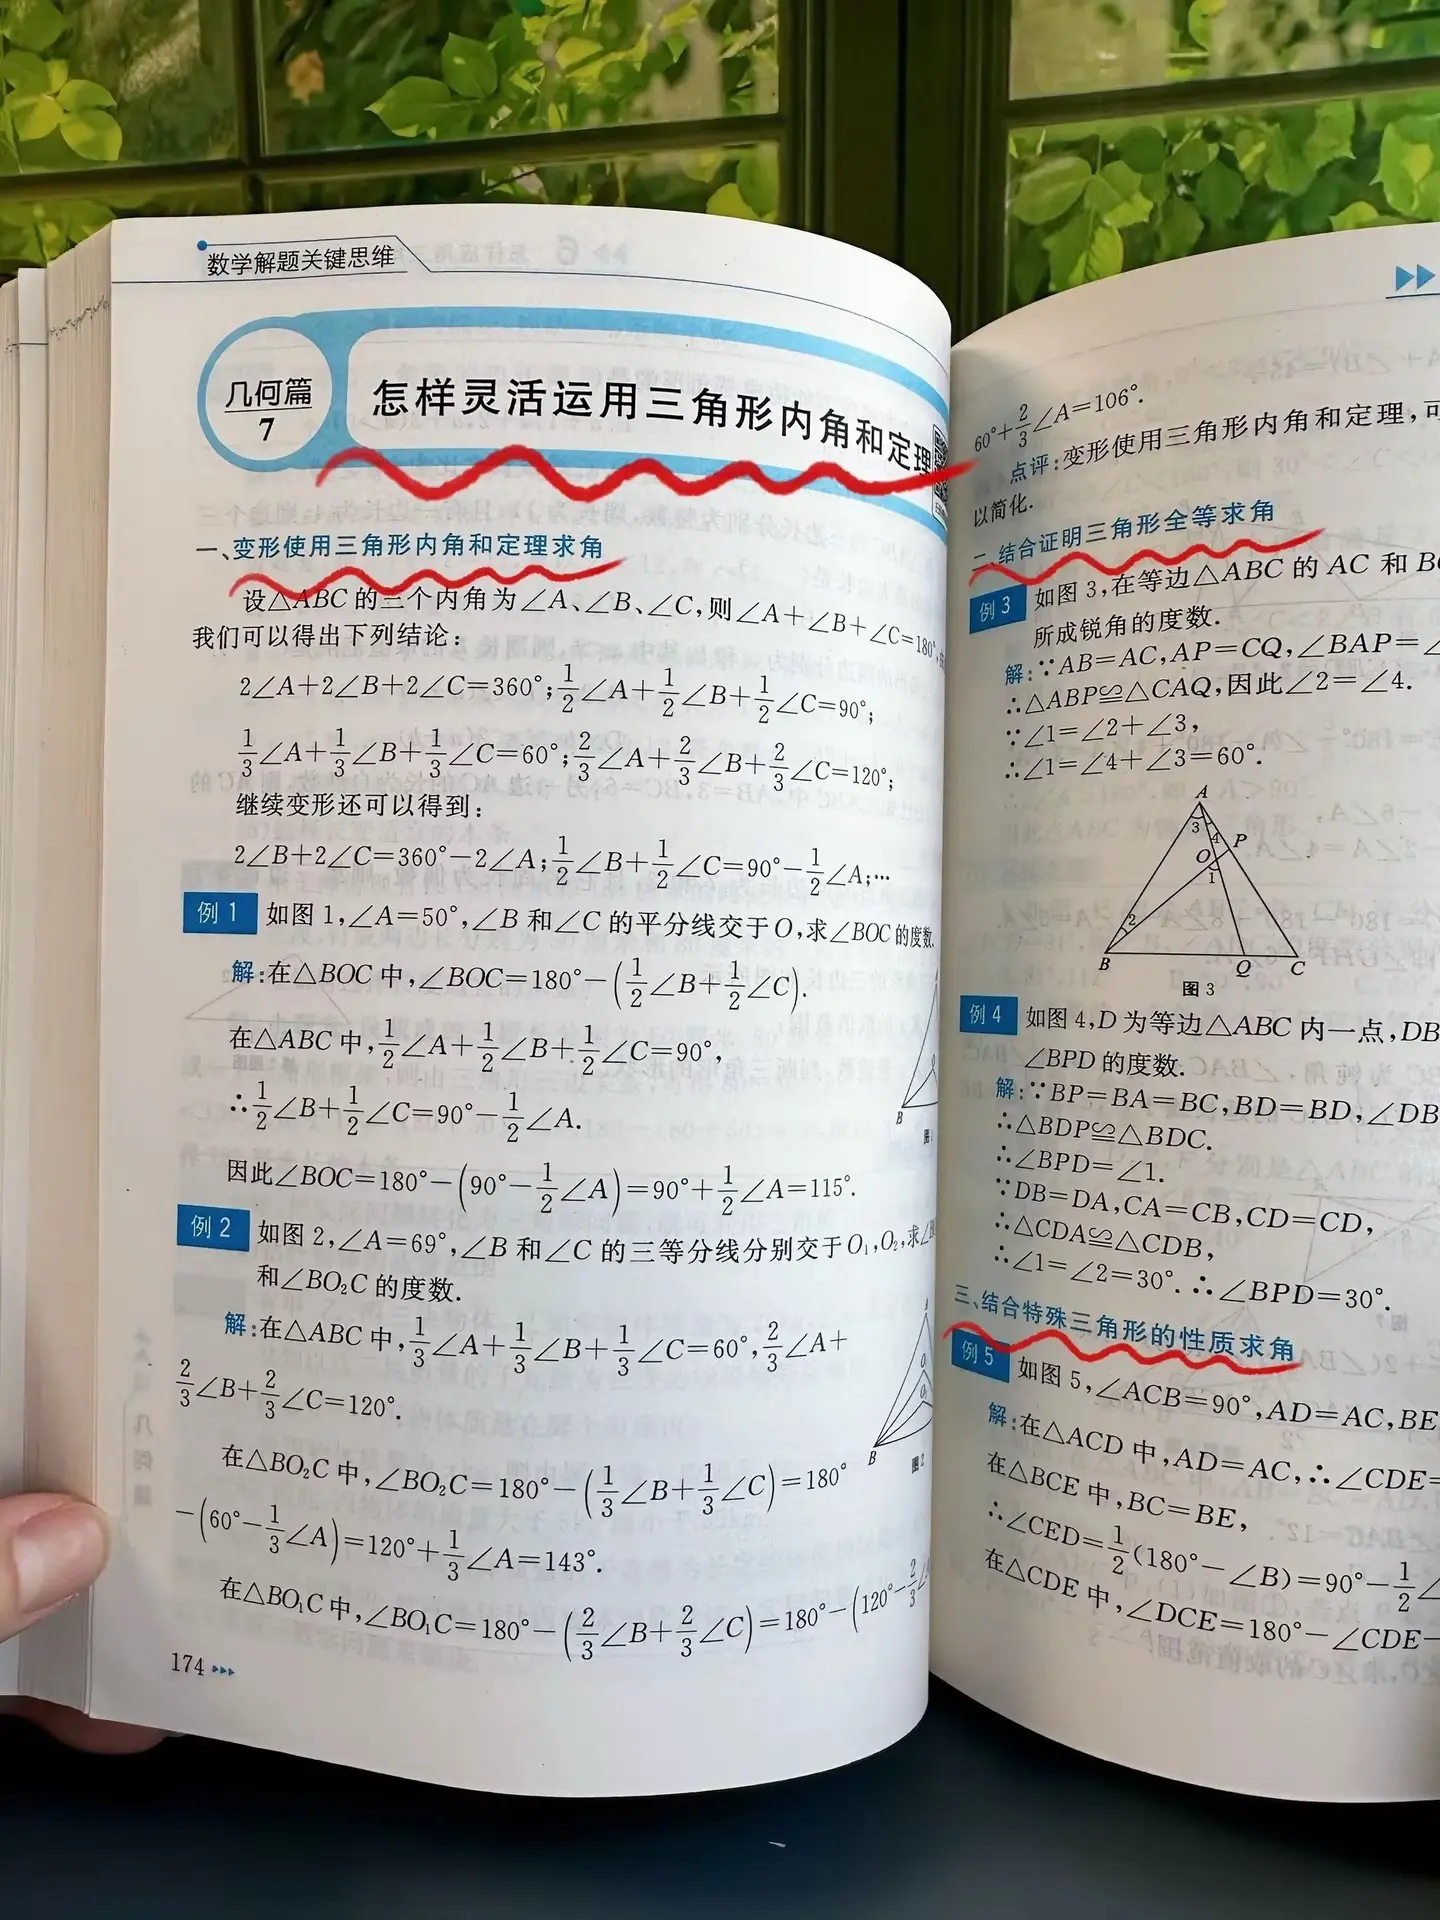 数学解题关键思维
几何篇
7
怎样灵活运用三角形内角和定理
一、变形使用三角形内角和定理求角
设△ABC的三个内角为∠A、∠B、∠C,则∠A+∠B+∠C=180°,
我们可以得出下列结论:
2∠A+2∠B+2∠C=360°;1/2∠A+1/2∠B+1/2∠C=90°;
1/3∠A+1/3∠B+1/3∠C=60°;2/3∠A+2/3∠B+2/3∠C=120°;
继续变形还可以得到:
2∠B+2∠C=360°-2∠A;1/2∠B+1/2∠C=90°-1/2∠A;…
例1 如图1,∠A=50°,∠B和∠C的平分线交于O,求∠BOC的度数.
解:在△BOC中,∠BOC=180°-(1/2∠B+1/2∠C).
在△ABC中,1/2∠A+1/2∠B+1/2∠C=90°,
∴1/2∠B+1/2∠C=90°-1/2∠A.
因此∠BOC=180°-(90°-1/2∠A)=90°+1/2∠A=115°.
B
例2 如图2,∠A=69°,∠B和∠C的三等分线分别交于O₁,O₂,求∠B
和∠BO₂C的度数.
解:在△ABC中,1/3∠A+1/3∠B+1/3∠C=60°,2/3∠A+
2/3∠B+2/3∠C=120°.
B
图2
在△BO₂C中,∠BO₂C=180°-(1/3∠B+1/3∠C)=180°
-(60°-1/3∠A)=120°+1/3∠A=143°.
在△BO₁C中,∠BO₁C=180°-(2/3∠B+2/3∠C)=180°-(120°-2/3∠
174
60°+2/3∠A=106°.
点评:变形使用三角形内角和定理,可
以简化.
二、结合证明三角形全等求角
例3 如图3,在等边△ABC的AC和BC
所成锐角的度数.
解:∵AB=AC,AP=CQ,∠BAP=∠
∴△ABP≌△CAQ,因此∠2=∠4.
∵∠1=∠2+∠3,
∴∠1=∠4+∠3=60°.
A
3
4
P
O
1
2
B
Q
C
图3
例4 如图4,D为等边△ABC内一点,DB
∠BPD的度数.
解:∵BP=BA=BC,BD=BD,∠DB
∴△BDP≌△BDC.
∴∠BPD=∠1.
∵DB=DA,CA=CB,CD=CD,
∴△CDA≌△CDB,
∴∠1=∠2=30°.∴∠BPD=30°.
三、结合特殊三角形的性质求角
例5 如图5,∠ACB=90°,AD=AC,BE
解:在△ACD中,AD=AC,∴∠CDE=
在△BCE中,BC=BE,
∴∠CED=1/2(180°-∠B)=90°-1/2∠
在△CDE中,∠DCE=180°-∠CDE-